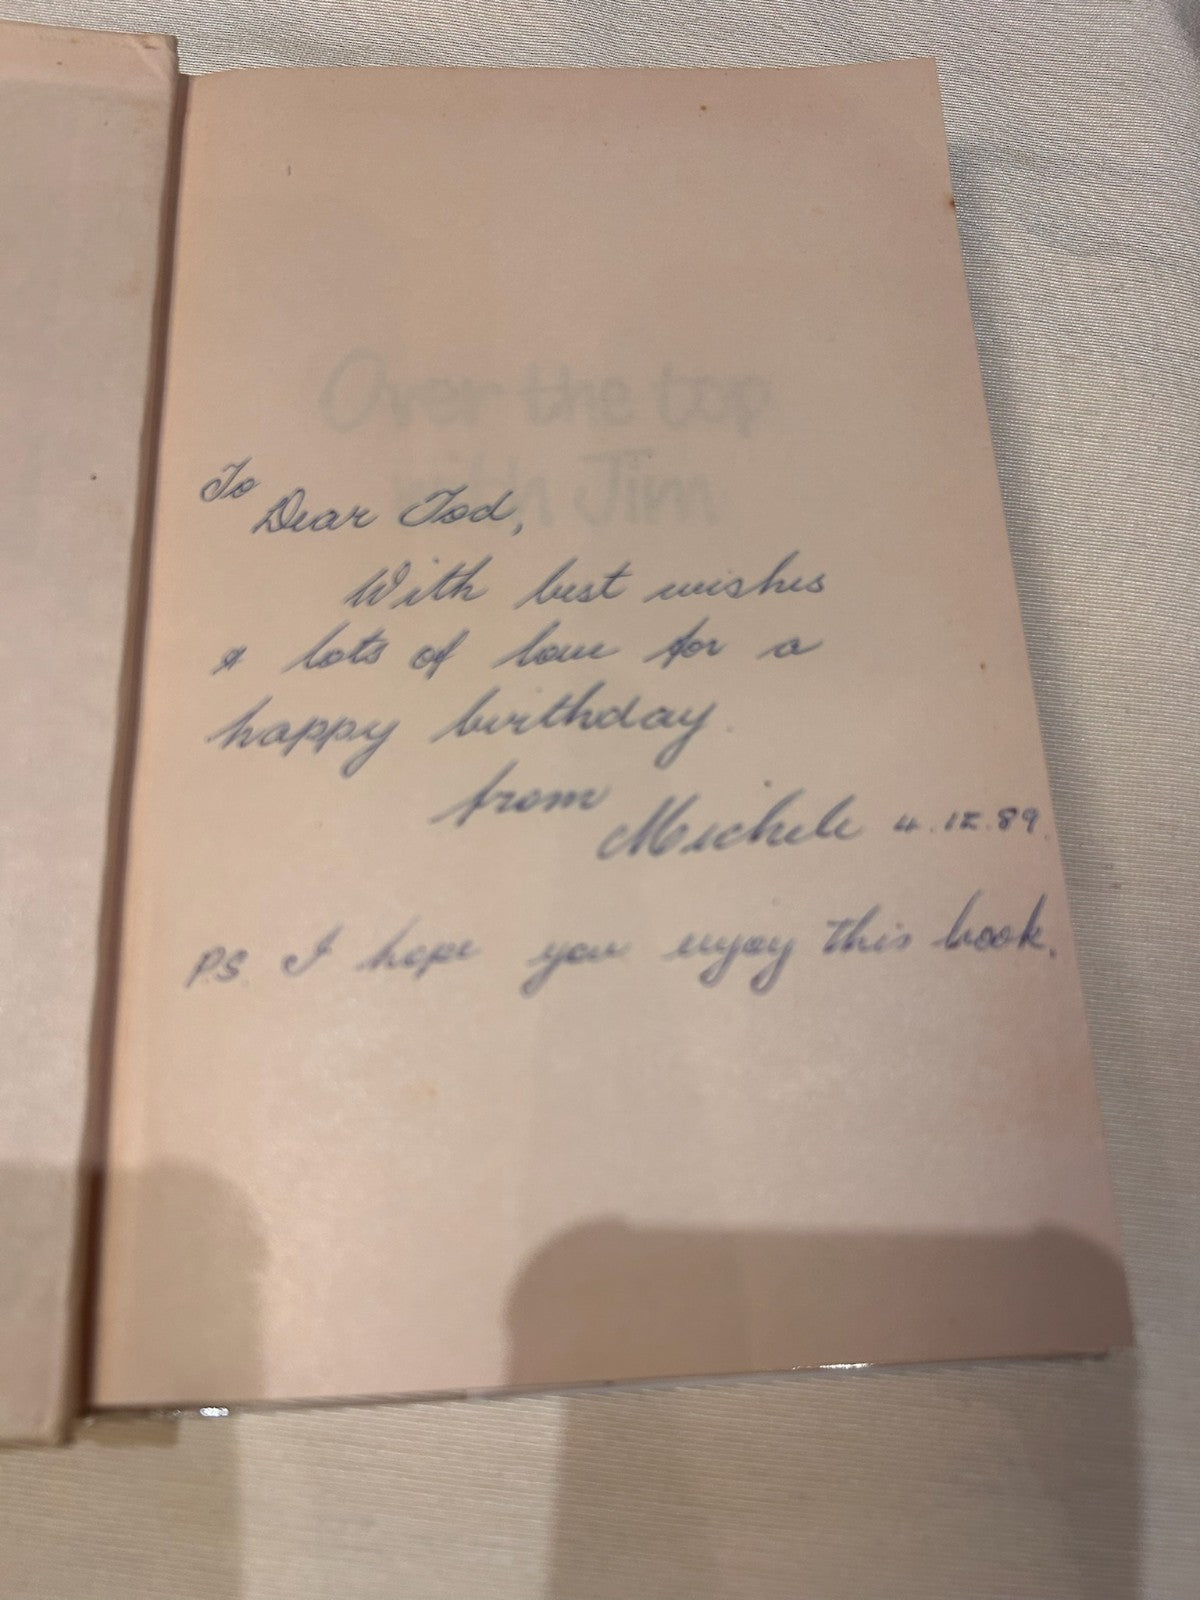 Over the top
with Jim
To
Dear Tod,
With best wishes
& lots of love for a
happy birthday.
from
Michele 4.12.89.
P.S. I hope you enjoy this book.